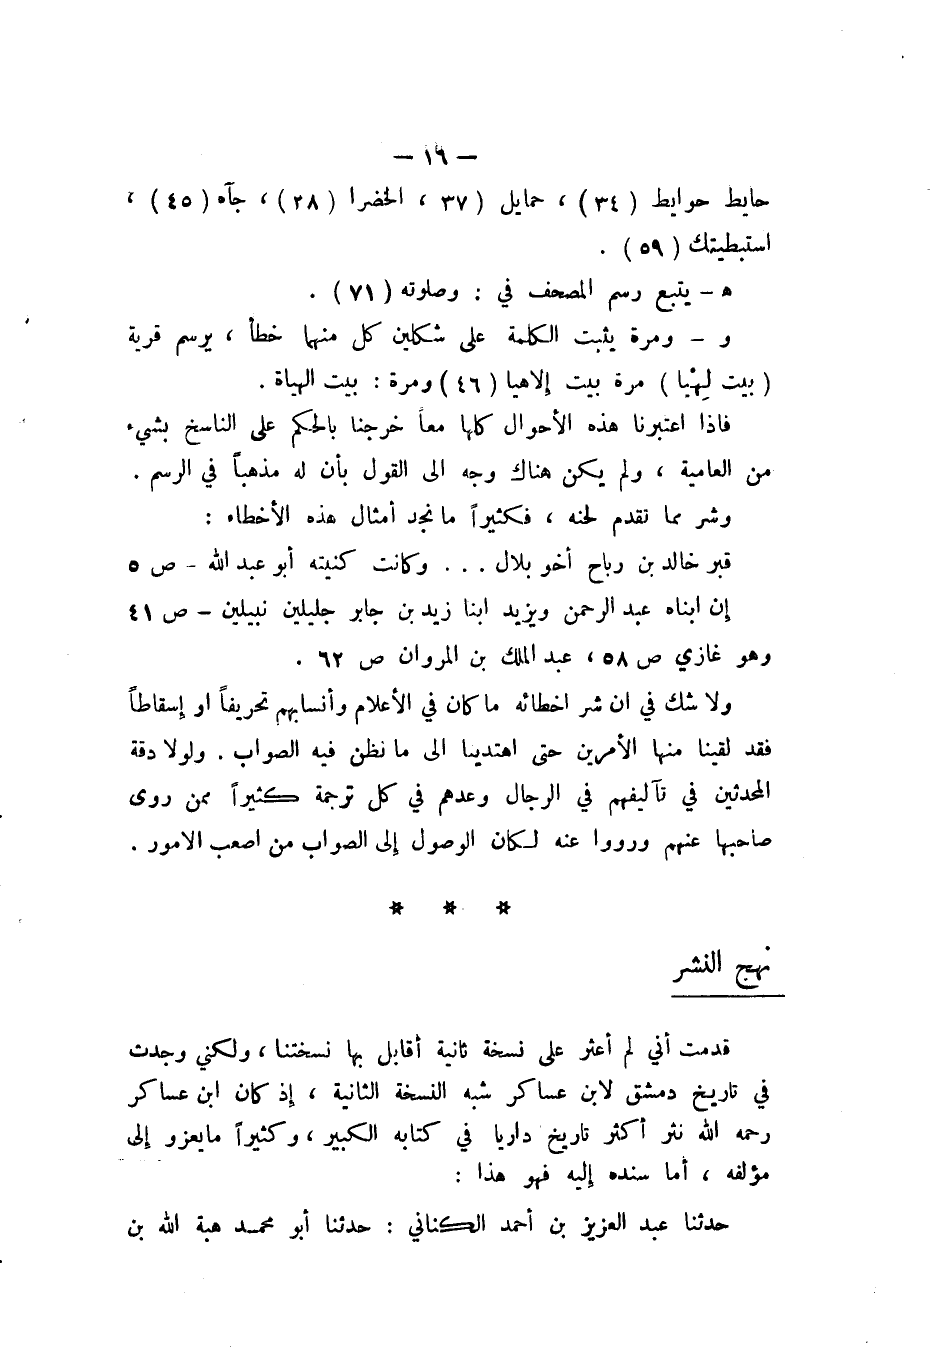 — ١٦ —
حايط حوايط ( ٣٤ ) ، حمايل ( ٣٧ ، الخضرا ( ٢٨ ) ، جآه ( ٤٥ ) ،
استبطيتك ( ٥٩ ) .
ه – يتبع رسم المصحف في : وصلوته ( ٧١ ) .
و – ومرة يثبت الكلمة على شكلين كل منها خطأ ، يرسم قرية
( بيت لِهْيا ) مرة بيت إلاهيا ( ٤٦ ) ومرة : بيت الهياة .
فاذا اعتبرنا هذه الأحوال كلها معاً خرجنا بالحكم على الناسخ بشيء
من العامية ، ولم يكن هناك وجه الى القول بأن له مذهباً في الرسم .
وشر مما تقدم لحنه ، فكثيراً ما نجد أمثال هذه الأخطاء :
قبر خالد بن رباح أخو بلال . . . وكانت كنيته أبو عبد الله – ص ٥
إن ابناه عبد الرحمن ويزيد ابنا زيد بن جابر جليلين نبيلين – ص ٤١
وهو غازي ص ٥٨ ، عبد الملك بن المروان ص ٦٢ .
ولا شك في ان شر اخطائه ما كان في الأعلام وأنسابهم تحريفاً او إسقاطاً
فقد لقينا منها الأمرين حتى اهتدينا الى ما نظن فيه الصواب . ولولا دقة
المحدثين في تآليفهم في الرجال وعدهم في كل ترجمة كثيراً ممن روى
صاحبها عنهم ورووا عنه لكان الوصول إلى الصواب من اصعب الامور .
* * *
نهج النشر
قدمت أني لم أعثر على نسخة ثانية أقابل بها نسختنا ، ولكني وجدت
في تاريخ دمشق لابن عساكر شبه النسخة الثانية ، إذ كان ابن عساكر
رحمه الله نثر أكثر تاريخ داريا في كتابه الكبير ، وكثيراً ما يعزو إلى
مؤلفه ، أما سنده إليه فهو هذا :
حدثنا عبد العزيز بن أحمد الكناني : حدثنا أبو محمد هبة الله بن